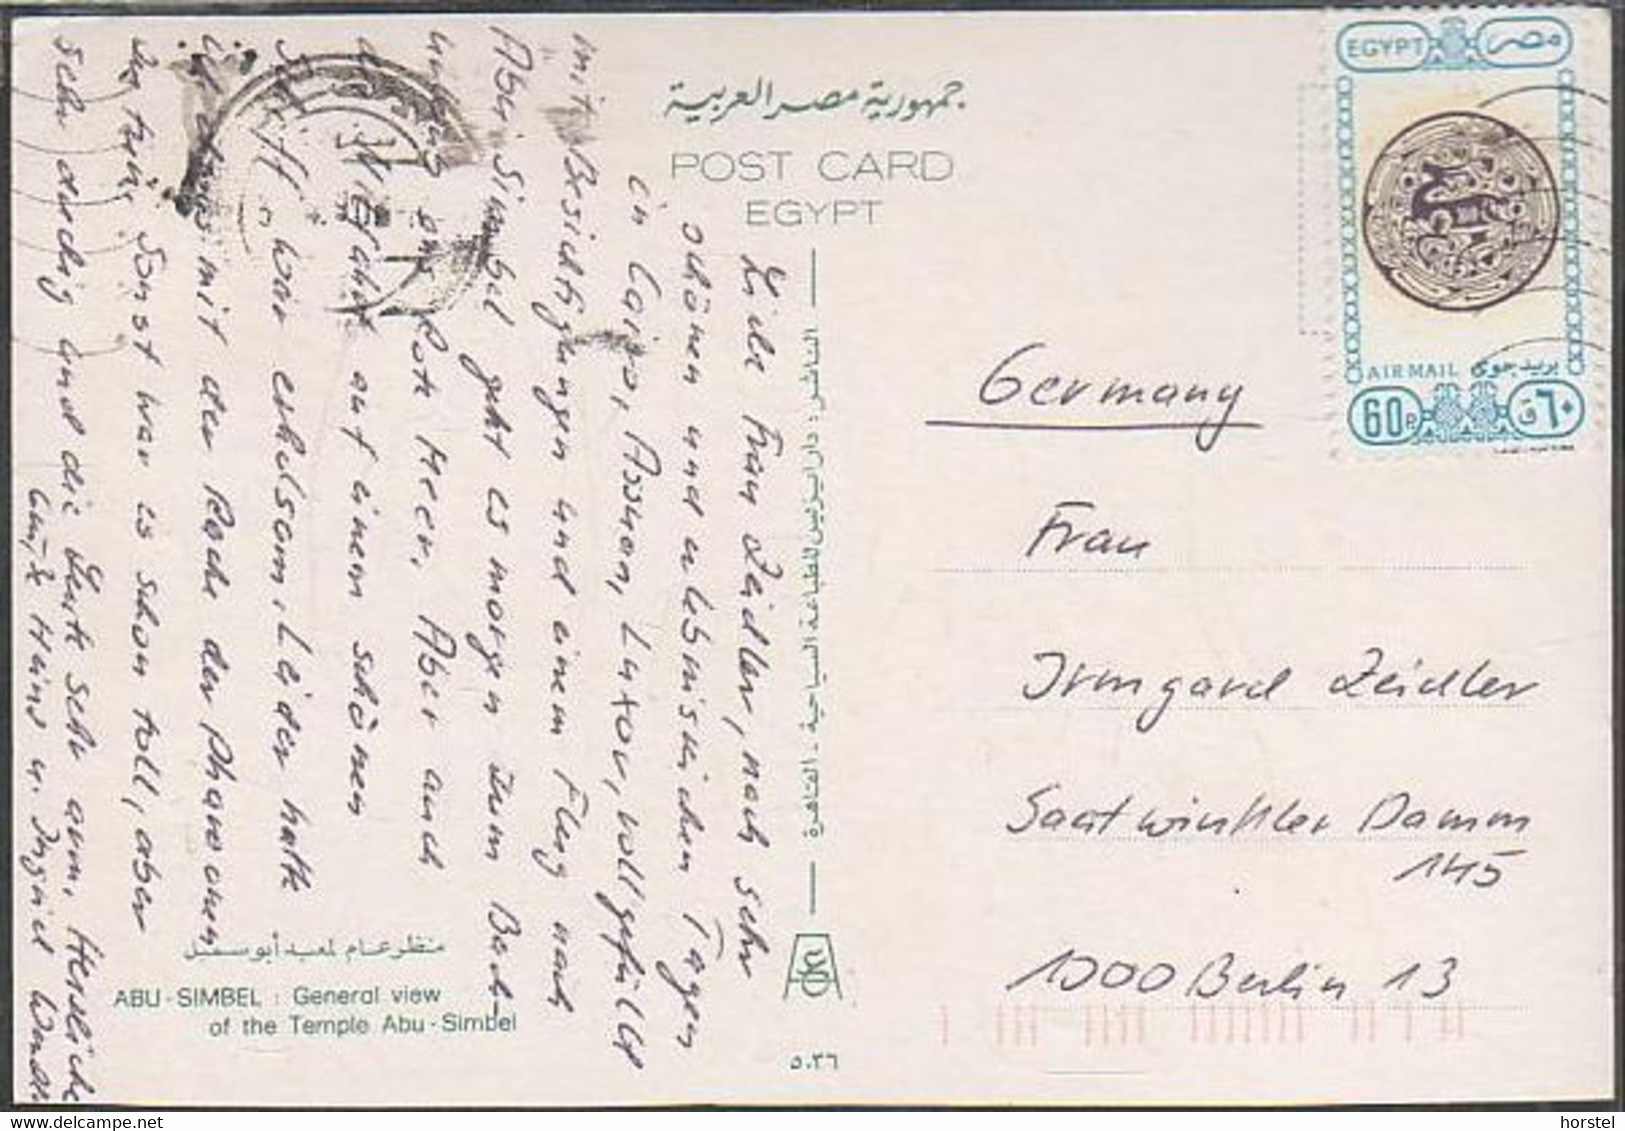 جمهورية مصر العربية
POST CARD
EGYPT
EGYPT مصر
AIR MAIL بريد جوى
60P ٦٠ق
Liebe Frau Zeidler, nach sehr
schönen und erlebnisreichen Tagen
in Cairo, Assuan, Luxor, vollgefüllt
mit Besichtigungen und einem Flug nach
Abu Simbel geht es morgen zum Bade-
urlaub ans Rote Meer. Aber auch
die Nilfahrt auf einem schönen
Schiff war erholsam. Leider hatte
ich etwas mit der Rache der Pharaonen
zu tun. Sonst war es schon toll, aber
sehr dreckig und die Leute sehr arm. Herzliche
Grüße Heinz u. Ingrid
الناشر : دار ايزيس للطباعة السياحية - القاهرة
Germany
Frau
Irmgard Zeidler
Saatwinkler Damm
145
1000 Berlin 13
منظر عام لمعبد أبو سمبل
ABU-SIMBEL : General view
of the Temple Abu-Simbel
٥٠٣٦
horstel